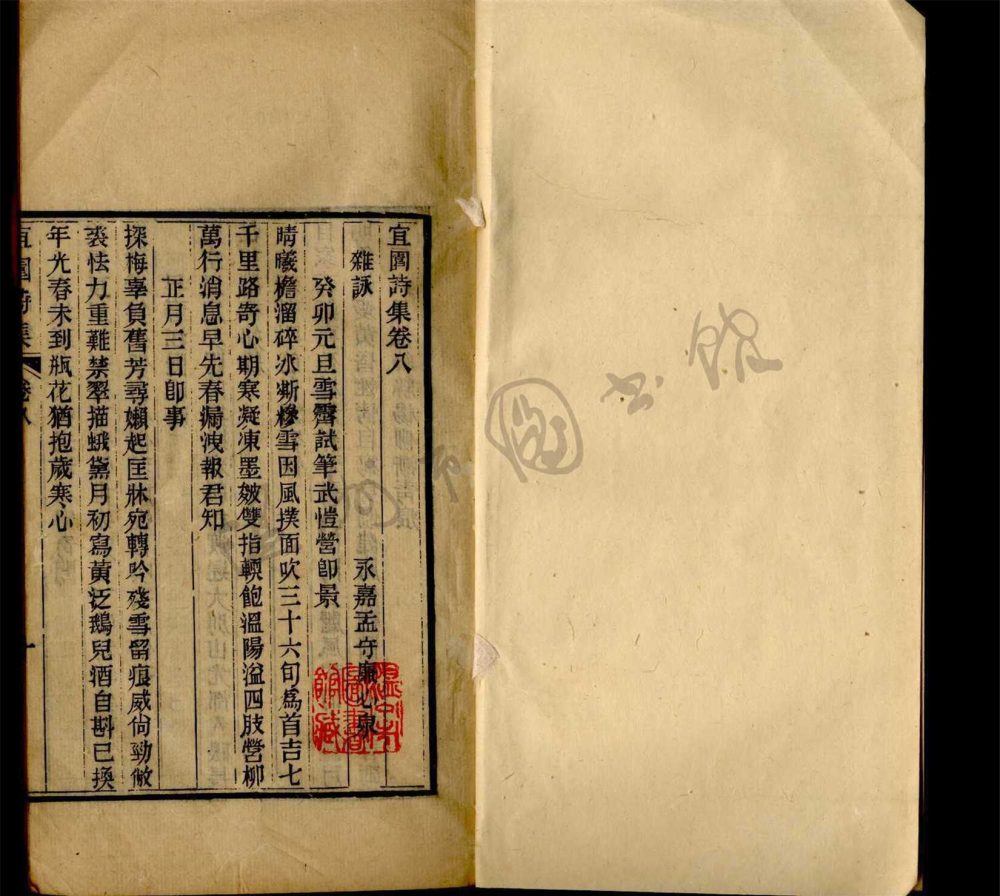 宜園詩集卷八
雜詠
永嘉孟守廉心泉
癸卯元旦雪霽試筆武愷營即景
晴曦檐溜碎冰嘶糝雪因風撲面吹三十六旬爲首吉七
千里路寄心期寒凝凍墨皴雙指輭飽溫陽溢四肢營柳
萬行消息早先春漏洩報君知
正月三日即事
探梅辜負舊芳尋嬾起匡牀宛轉吟殘雪留痕威尙勁敝
裘怯力重難禁翠描蛾黛月初寫黃泛鵝兒酒自斟已換
年光春未到瓶花猶抱歲寒心
宜園詩集
卷八
一
圖書館藏
圖書館